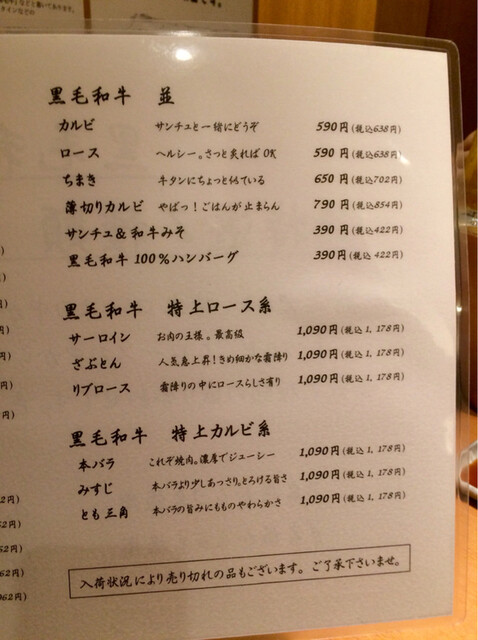 黒毛和牛 並
カルビ サンチュと一緒にどうぞ 590円(税込638円)
ロース ヘルシー。さっと炙ればOK 590円(税込638円)
ちまき 牛タンにちょっと似ている 650円(税込702円)
薄切りカルビ やばっ!ごはんが止まらん 790円(税込854円)
サンチュ&和牛みそ 390円(税込422円)
黒毛和牛100%ハンバーグ 390円(税込422円)
黒毛和牛 特上ロース系
サーロイン お肉の王様。最高級 1,090円(税込1,178円)
ざぶとん 人気急上昇!きめ細かな霜降り 1,090円(税込1,178円)
リブロース 霜降りの中にロースらしさ有り 1,090円(税込1,178円)
黒毛和牛 特上カルビ系
本バラ これぞ焼肉。濃厚でジューシー 1,090円(税込1,178円)
みすじ 本バラより少しあっさり。とろける旨さ 1,090円(税込1,178円)
とも三角 本バラの旨みにもものやわらかさ 1,090円(税込1,178円)
入荷状況により売り切れの品もございます。ご了承下さいませ。